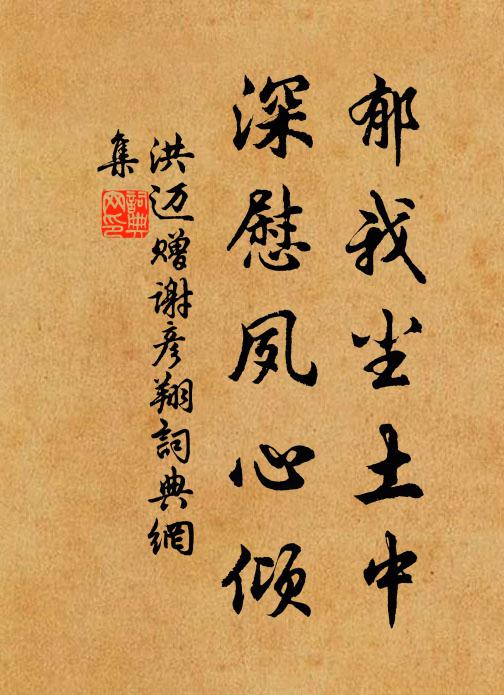 郁我尘土中
深慰夙心倾
洪迈赠谢彦翔詞典網
集
詞典网印